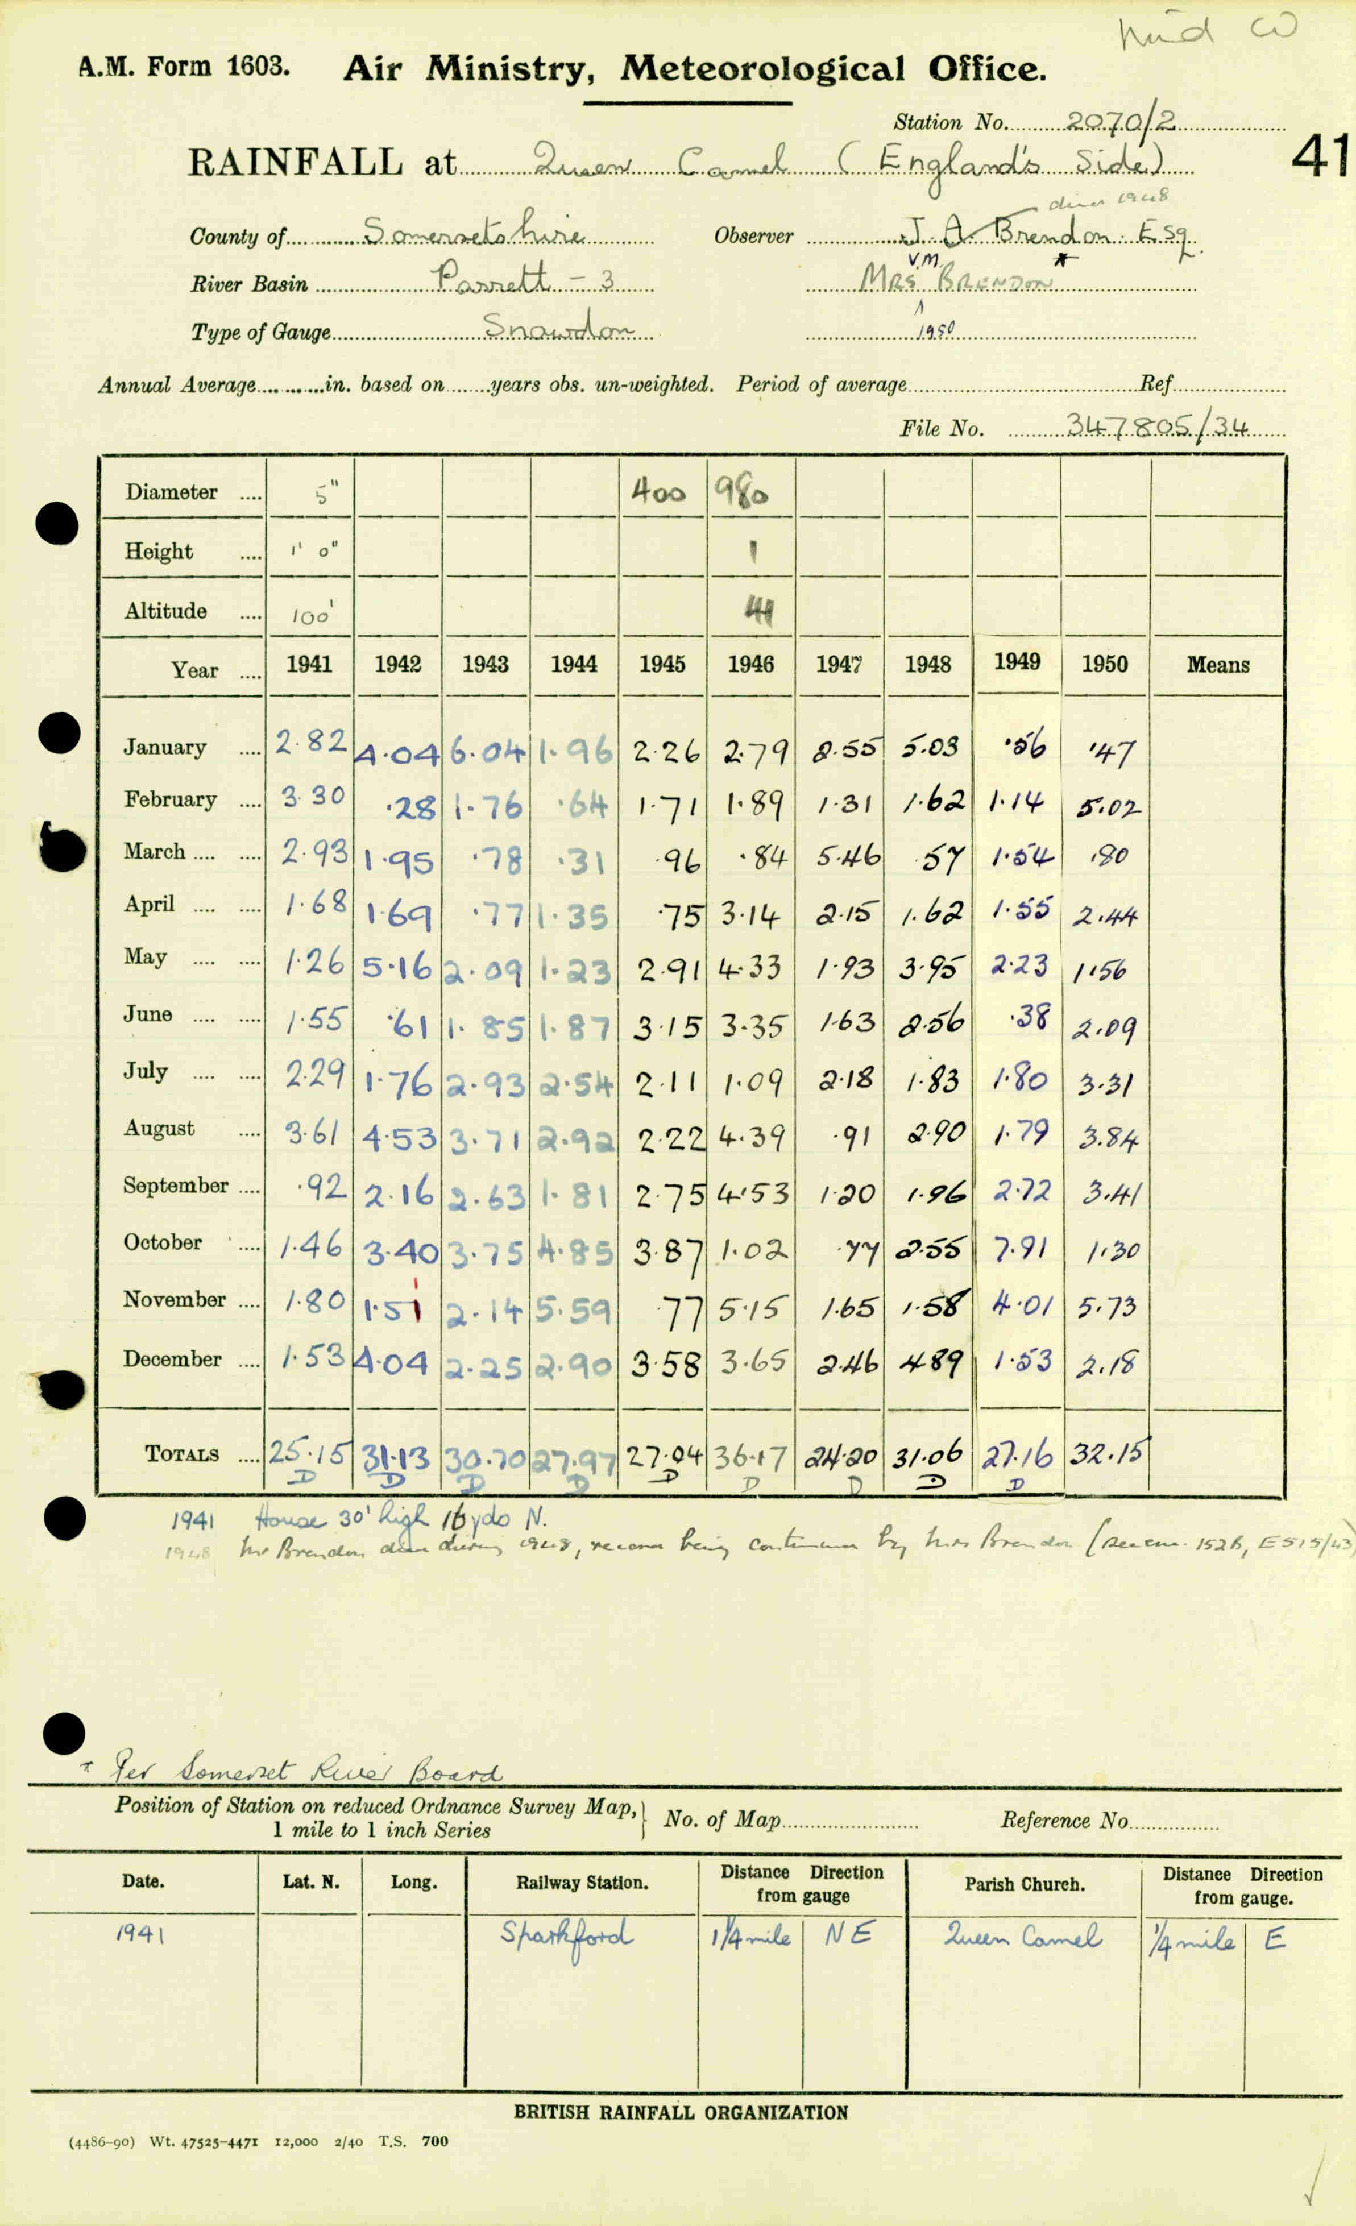 Mid W
A.M. Form 1603. Air Ministry, Meteorological Office.
Station No. 2070/2
41
RAINFALL at Queen Camel (England's Side)
died 1948
County of Somersetshire Observer J. A. Brendon Esq.
V.M. *
River Basin Parrett - 3 MRS BRENDON
Type of Gauge Snowdon 1950
Annual Average in. based on years obs. un-weighted. Period of average Ref
File No. 347805/34
Diameter 5" 400 980
Height 1' 0" 1
Altitude 100' 41
Year 1941 1942 1943 1944 1945 1946 1947 1948 1949 1950 Means
January 2.82 4.04 6.04 1.96 2.26 2.79 2.55 5.03 .56 .47
February 3.30 .28 1.76 .64 1.71 1.89 1.31 1.62 1.14 5.02
March 2.93 1.95 .78 .31 .96 .84 5.46 .57 1.54 .80
April 1.68 1.69 .77 1.35 .75 3.14 2.15 1.62 1.55 2.44
May 1.26 5.16 2.09 1.23 2.91 4.33 1.93 3.95 2.23 1.56
June 1.55 .61 1.85 1.87 3.15 3.35 1.63 2.56 .38 2.09
July 2.29 1.76 2.93 2.54 2.11 1.09 2.18 1.83 1.80 3.31
August 3.61 4.53 3.71 2.92 2.22 4.39 .91 2.90 1.79 3.84
September .92 2.16 2.63 1.81 2.75 4.53 1.20 1.96 2.72 3.41
October 1.46 3.40 3.75 4.85 3.87 1.02 .77 2.55 7.91 1.30
November 1.80 1.51 2.14 5.59 .77 5.15 1.65 1.58 4.01 5.73
December 1.53 4.04 2.25 2.90 3.58 3.65 2.46 4.89 1.53 2.18
TOTALS 25.15 31.13 30.70 27.97 27.04 36.17 24.20 31.06 27.16 32.15
D D D D D D D D D
1941 House 30' high 16 yds N.
1948 Mr Brendon died during 1948, record being continued by Mrs Brendon (see 152B, E515/43)
* Per Somerset River Board
Position of Station on reduced Ordnance Survey Map, 1 mile to 1 inch Series } No. of Map Reference No.
Date. Lat. N. Long. Railway Station. Distance Direction from gauge Parish Church. Distance Direction from gauge.
1941 Sparkford 1¼ mile NE Queen Camel ¼ mile E
BRITISH RAINFALL ORGANIZATION
(4486-90) Wt. 47525-4471 12,000 2/40 T.S. 700